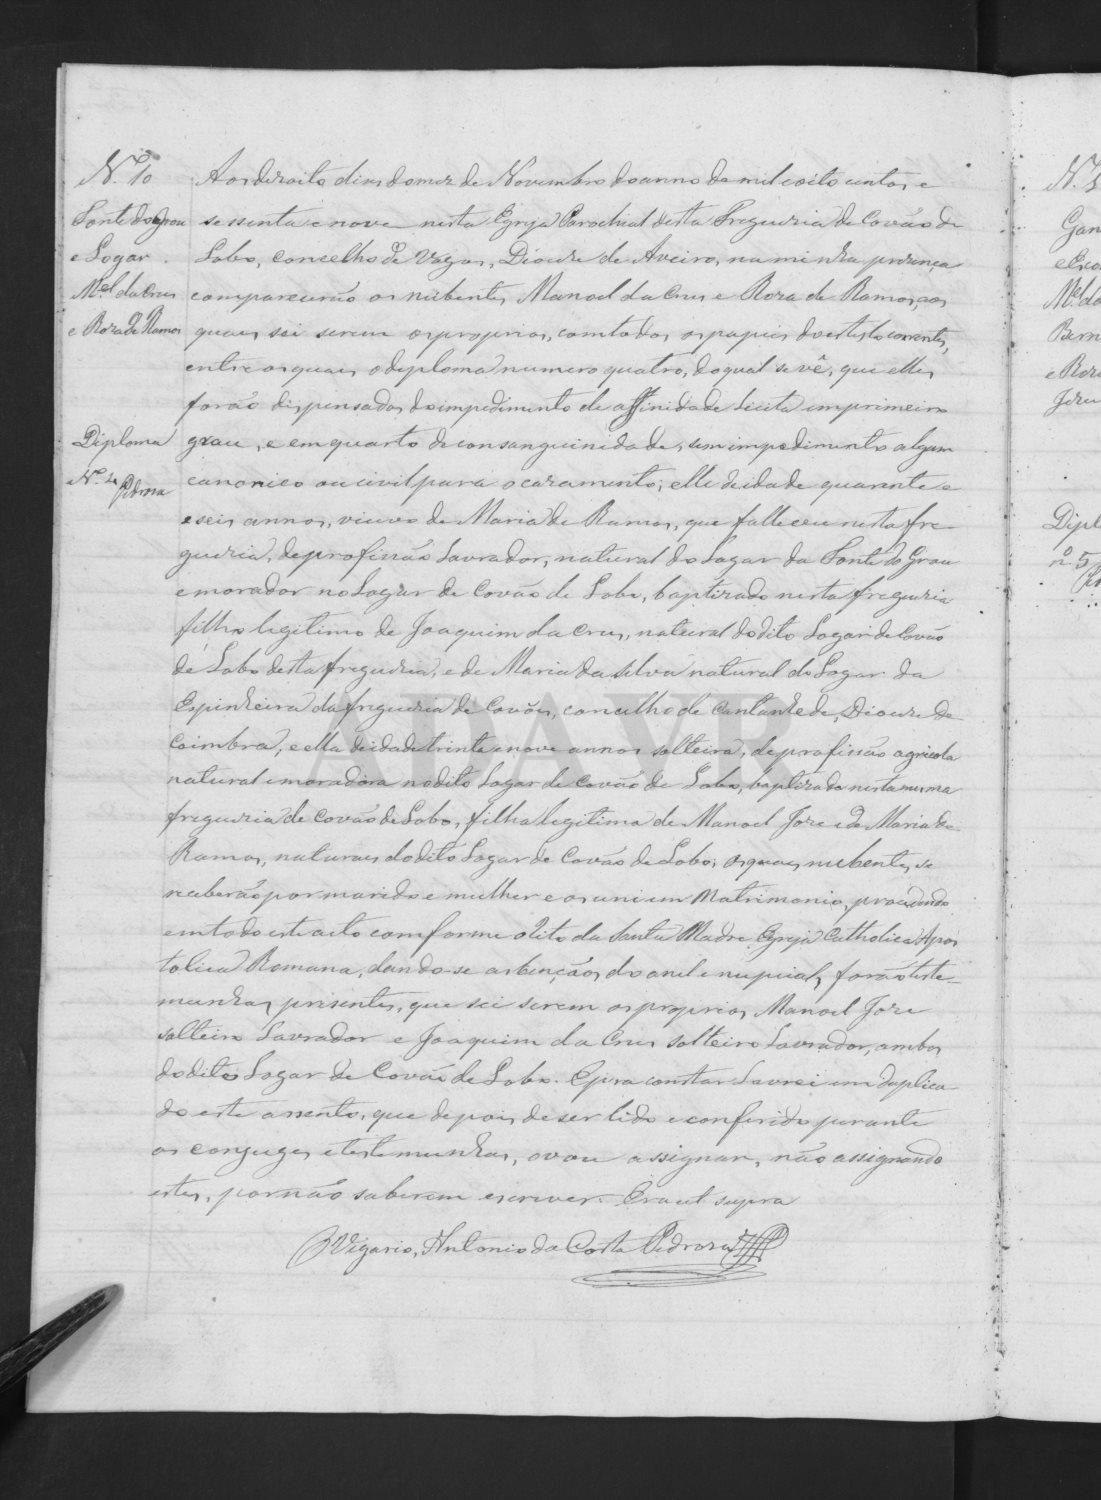 N.º 10
Fonte do Grou
e Logar
M.el da Crus
e Roza de Ramos
Diploma
N.º 4
Pedroza
Aos dezoito dias do mez de Novembro do anno de mil e oito centos e
sessenta e nove nesta Egreja Parochial desta Freguezia de Covão de
Lobo, concelho de Vagos, Dioceze de Aveiro, na minha prezença
comparecerão os nubentes Manoel da Crus e Roza de Ramos, aos
quaes sei serem os proprios, com todos os papeis do estillo correntes,
entre os quaes o diploma numero quatro, do qual se vê, que elles
forão dispensados do impedimento de affinidade licita em primeiro
grau, e em quarto de consanguinidade, sem impedimento algum
canonico ou civil para o cazamento; elle de idade quarenta e
e seis annos, viuvo de Maria de Ramos, que falleceu nesta fre-
guezia, de profissão Lavrador, natural do Logar da Fonte do Grou
e morador no Logar de Covão de Lobo, baptizado nesta freguezia
filho legitimo de Joaquim da Crus, natural do dito Logar de Covão
de Lobo desta freguezia, e de Maria da Silva natural do Logar da
Espinheira da freguezia de Covões, concelho de Cantanhede, Dioceze de
Coimbra, e ella de idade trinta e nove annos solteira, de profissão agricola
natural e moradora no dito Logar de Covão de Lobo, baptizada nesta mesma
freguezia de Covão de Lobo, filha legitima de Manoel Joze e de Maria de
Ramos, naturaes do dito Logar de Covão de Lobo; os quaes nubentes se
receberão por marido e mulher e os uni em Matrimonio, procedendo
em todo este acto comforme o Rito da Santa Madre Egreja Catholica Apos
tolica Romana, dando-se as bençãos do anel e nupciaes, forão teste-
munhas prezentes, que sei serem os proprios, Manoel Joze
solteiro Lavrador e Joaquim da Crus solteiro Lavrador, ambos
do dito Logar de Covão de Lobo. E para constar Lavrei em duplica-
do este assento, que depois de ser lido e conferido perante
os conjuges e testemunhas, o vou assignar, não assignando
estes, por não saberem escrever. Era ut supra
O Vigario, Antonio da Costa Pedroza
ADAVR
N.º
Gan
M.el da
Bern
e Roza
Dipl
n.º 5